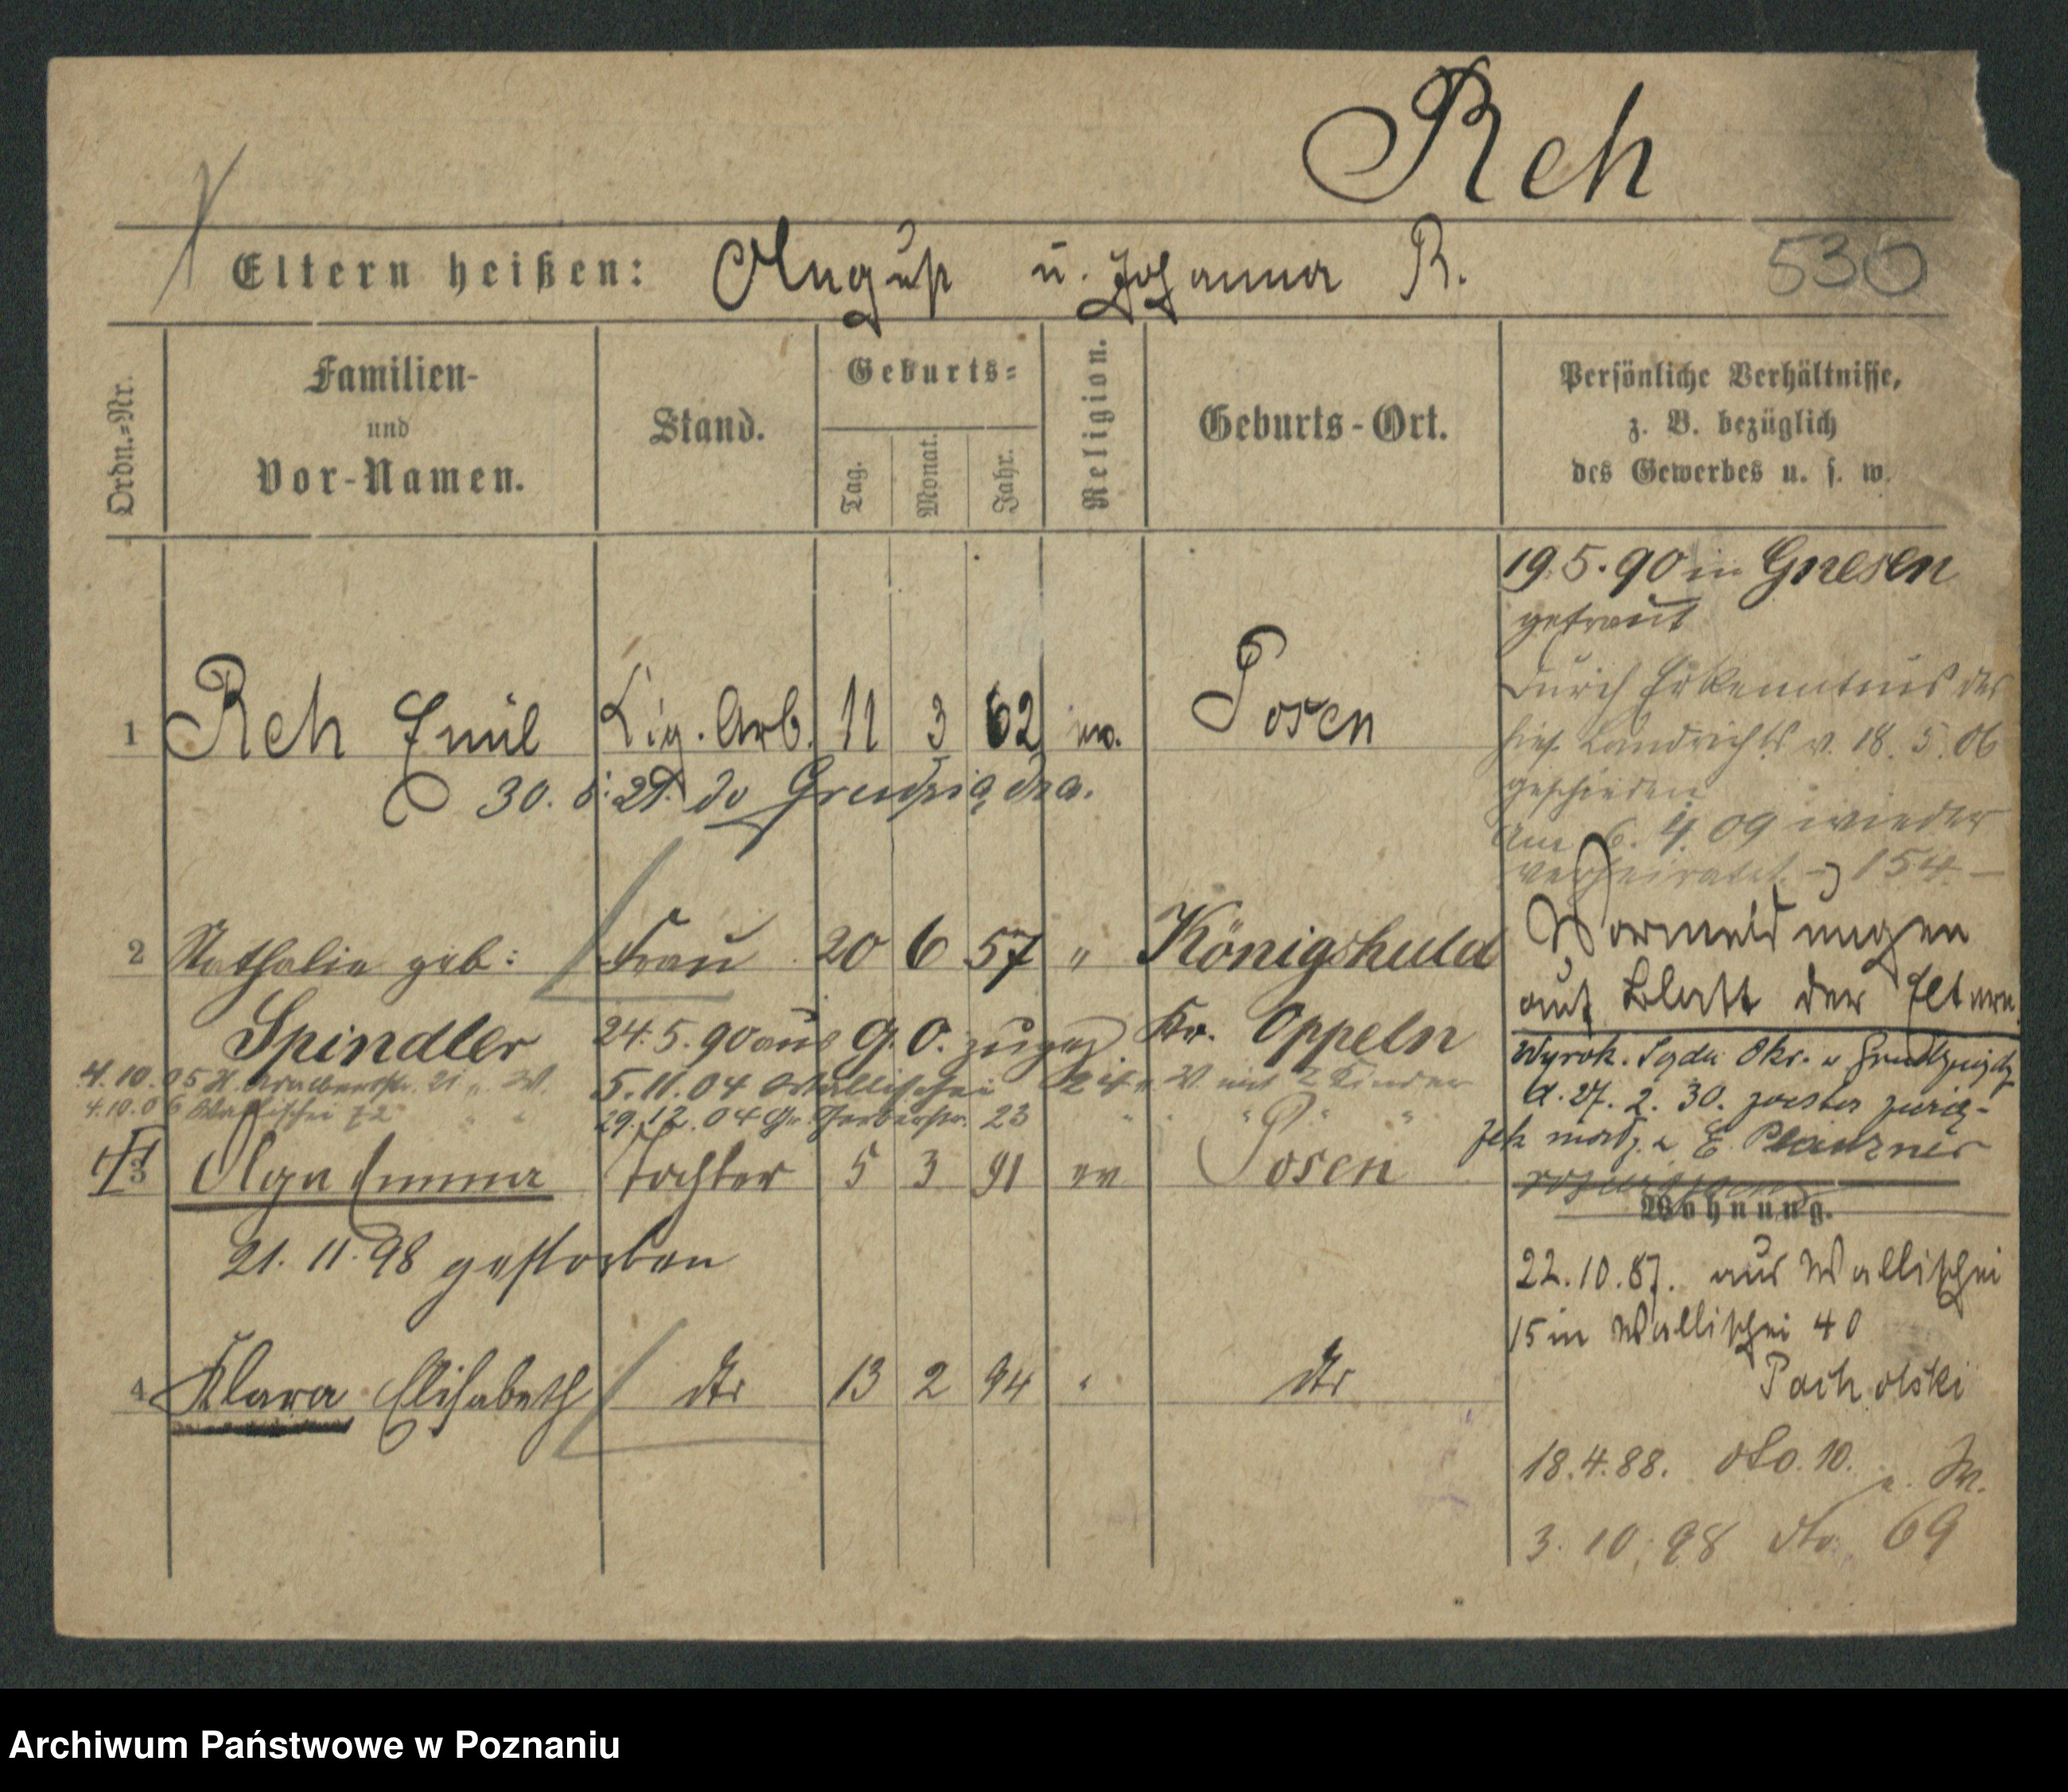 Reh
Eltern heißen: August u. Johanna R.
530
Ordn.-Nr.
Familien-
und
Vor-Namen.
Stand.
Geburts-
Tag.
Monat.
Jahr.
Religion.
Geburts-Ort.
Persönliche Verhältnisse,
z. B. bezüglich
des Gewerbes u. s. w.
19.5.90 in Gnesen
getraut
Durch Erkenntnis des
hies. Landrichts v. 18. 5. 06
geschieden
Am 6. 4. 09 wieder
verheiratet 154
1 Reh Emil Zig. Arb. 11 3 62 Posen
30.
2 Nathalie geb: Frau 20 6 57 " Königshuld
Spindler Kr. Oppeln
24.5.90 aus G. O. zugez
4.10.05 21 W.
5.11.04 Wallischei W. mit 2 Kinder
4.10.06 Wallischei 72
29.12.04 Gr. Gerberstr. 23
Vormeldungen
auf Blatt der Eltern.
Wyrok. Sądu Okr. w
d. 27. 2. 30. został
3 Olga Emma Tochter 5 3 91 ev Posen
21.11.98 gestorben
4 Klara Elisabeth dto 13 2 94 " dto
Wohnung.
22.10.87. aus Wallischei
15 in Wallischei 40
Pacholski
18.4.88. dto. 10.
3.10.98 dto. 69
Archiwum Państwowe w Poznaniu